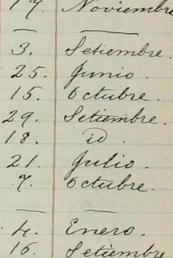 17. Noviembre
3. Setiembre.
25. Junio.
15. Octubre.
29. Setiembre.
18. id.
21. Julio.
7. Octubre.
4. Enero.
16. Setiembre